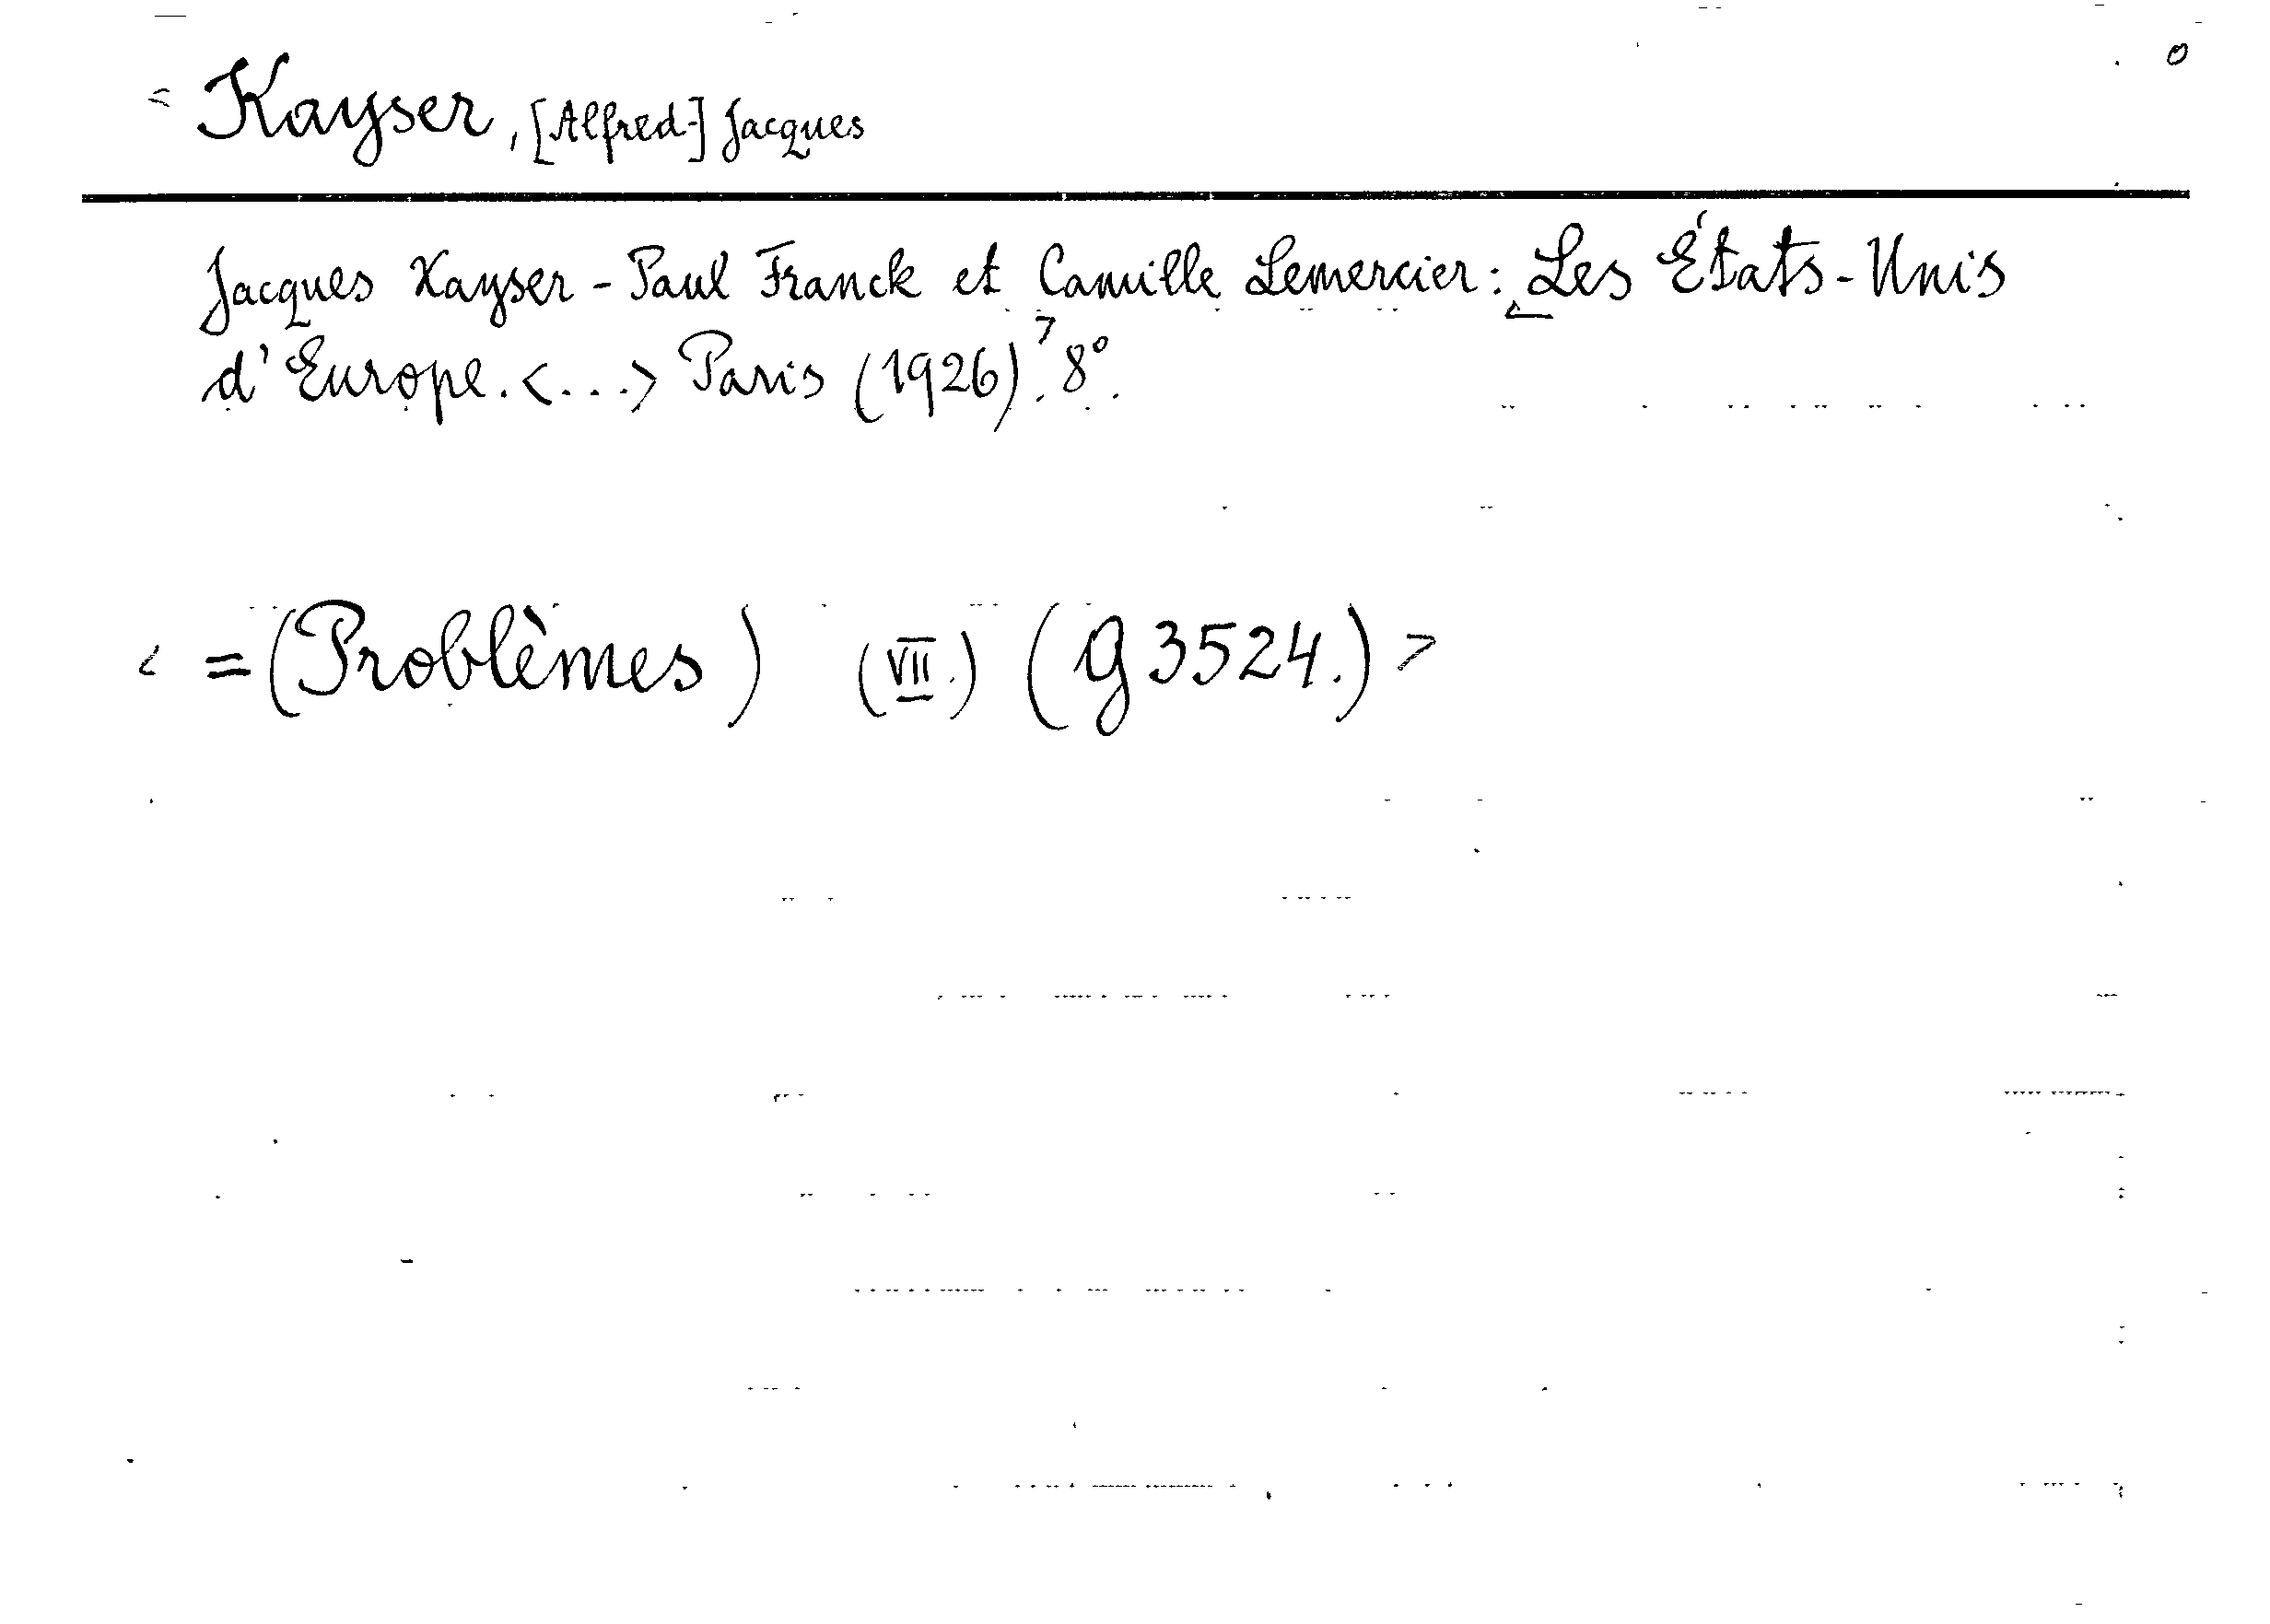 Kayser, [Alfred-] Jacques
Jacques Kayser - Paul Franck et Camille Lemercier: Les États-Unis
d'Europe. <...> Paris (1926). 8°.
<=(Problèmes) (VII.) (g 3524.)>